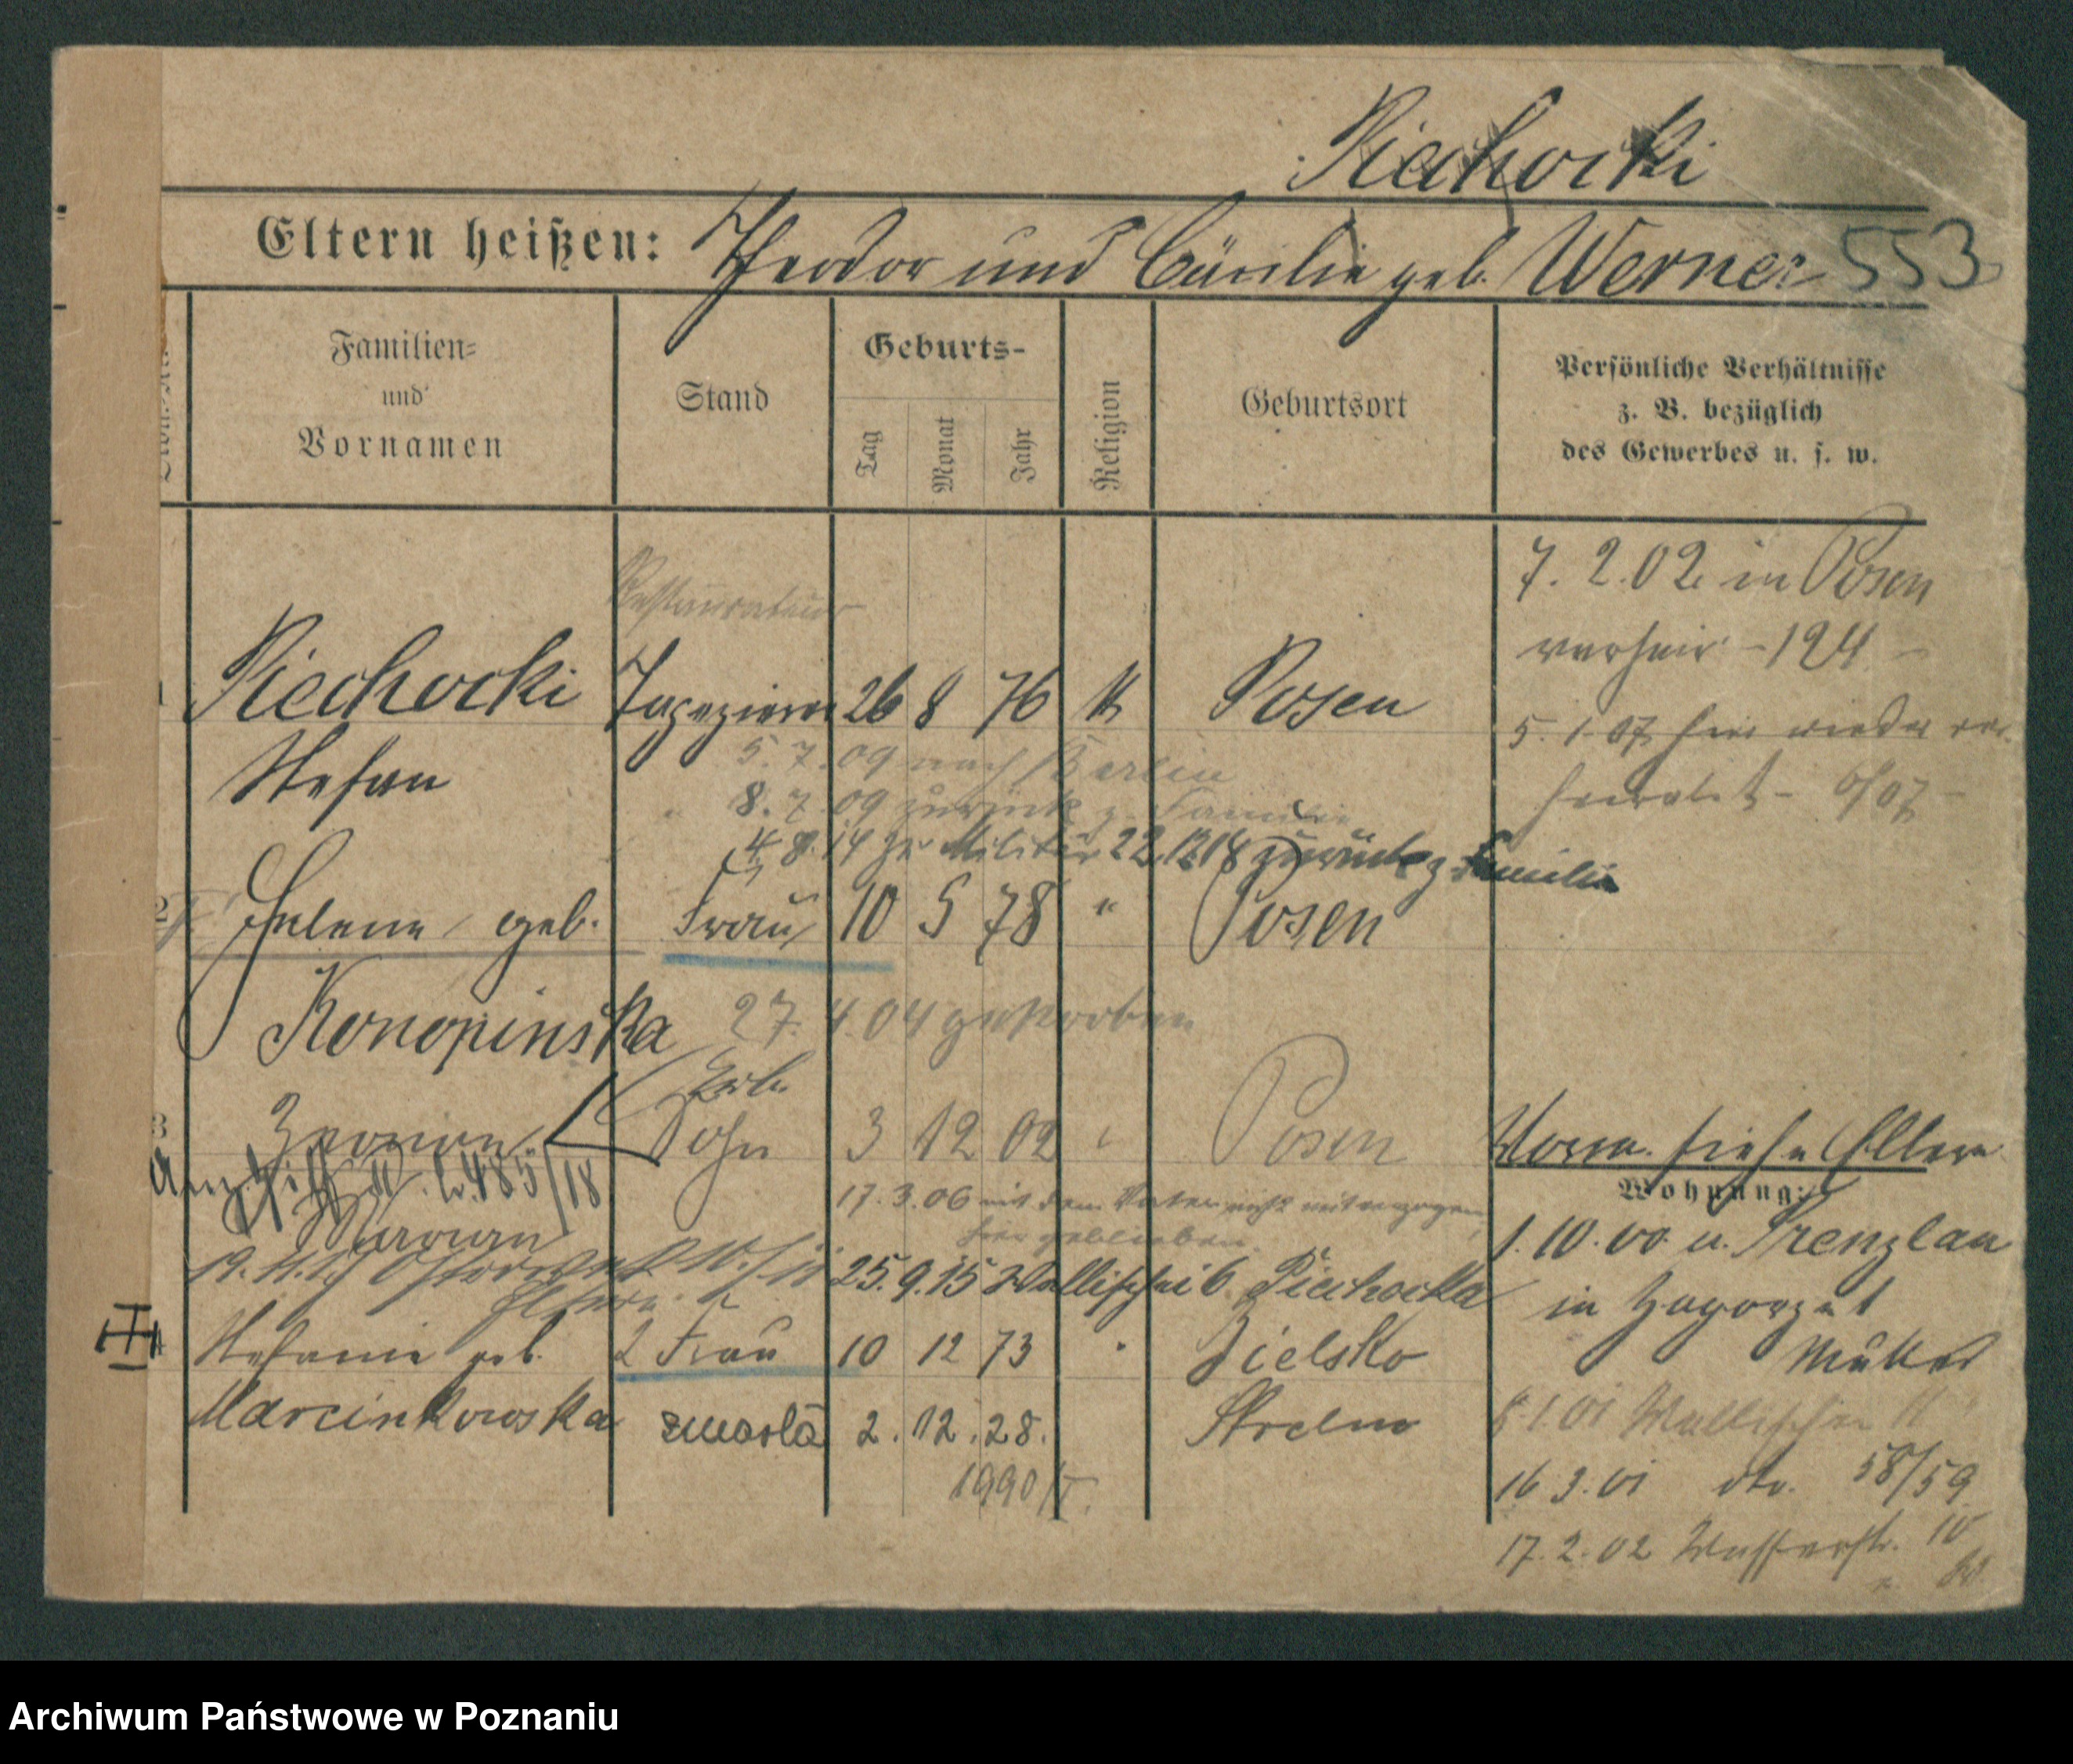 Piechocki
Eltern heißen: Theodor und Cäcilie geb. Werner 553
Familien- und Vornamen
Stand
Geburts-
Tag
Monat
Jahr
Religion
Geburtsort
Persönliche Verhältnisse
z. B. bezüglich
des Gewerbes u. s. w.
Restaurateur
7. 2. 02 in Posen
verheir. - 124 -
Piechocki Tapezierer 26 8 76 K Posen
5. 1. 07 hier wieder ver-
heiratet - 6/07 -
Stefan
5. 7. 09 nach Berlin
8. 7. 09 zurück z. Familie
4. 8. 14 z. Militär 22.12.18 zurück z. Familie
2 Helene geb. Frau 10 5 78 " Posen
Konopinska 27. 4. 04 gestorben
3 Sohn 3 12 02 Posen
Vorm. siehe Eltern
Wohnung:
485/18
Marian
17. 3. 06 mit dem Vater nicht mitverzogen,
hier geblieben.
25. 9. 15 Wallischei 6. Piechocka
1. 10. 00 u. Prenzlau
in Zagorze 1
Müller
Eltern
Stefanie geb. 2 Frau 10 12 73 " Bielsko
Marcinkowska zmarła 2. 12. 28. Strelno
1990/
8. 1. 01 Wallischei 11
16 3. 01 dto. 58/59
17. 2. 02 Wasserstr. 10